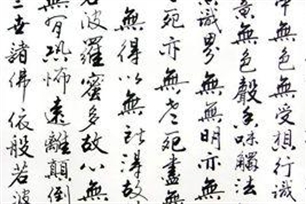 中無色無受想行識
意無色聲香味觸法
意識界無無明亦無
老死亦無老死盡無
無得以無所得故
若波羅蜜多故心無
無有恐怖遠離顛倒
三世諸佛依般若波